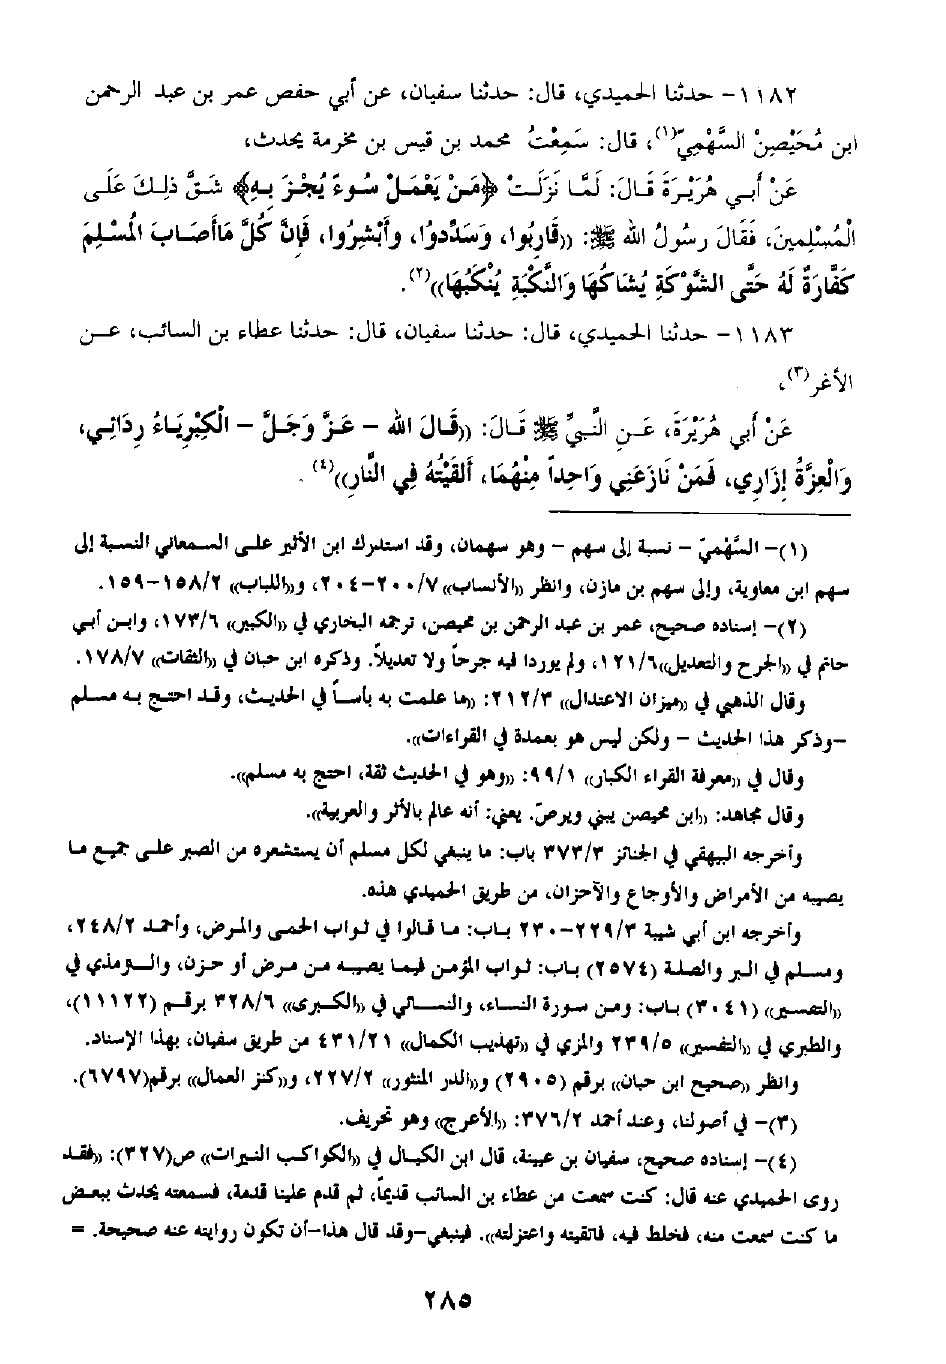 ١١٨٢- حدثنا الحميدي، قال: حدثنا سفيان، عن أبي حفص عمر بن عبد الرحمن
ابن مُحَيْصِنٍ السَّهْمِيّ(١)، قال: سَمِعْتُ محمد بن قيس بن مخرمة يحدث،
عَنْ أَبي هُرَيْرَةَ قَالَ: لَمَّا نَزَلَتْ ﴿مَنْ يَعْمَلْ سُوءً يُجْزَ بِهِ﴾ شَقَّ ذلِكَ عَلَى
الْمُسْلِمينَ، فَقَالَ رسُولُ الله ﷺ: ((قَارِبُوا، وَسَدِّدوُا، وأَبْشِرُوا، فَإِنَّ كُلَّ مَاأَصَابَ الْمُسْلِمَ
كَفَّارَةٌ لَهُ حَتَّى الشَّوْكَةِ يُشَاكُهَا وَالنَّكْبَةِ يُنْكَبُهَا))(٢).
١١٨٣- حدثنا الحميدي، قال: حدثنا سفيان، قال: حدثنا عطاء بن السائب، عن
الأغر(٣)،
عَنْ أَبي هُرَيْرَةَ، عَنِ النَّبيِّ ﷺ قَالَ: ((قَالَ الله - عَزَّ وَجَلَّ - الْكِبْرِيَاءُ رِدَائِي،
وَالْعِزَّةُ إِزَارِي، فَمَنْ نَازَعَنِي وَاحِداً مِنْهُمَا، أَلْقَيْتُهُ فِي النَّارِ))(٤).
(١)- السَّهْمِيّ - نسبة إلى سهم - وهو سهمان، وقد استدرك ابن الأثير على السمعاني النسبة إلى
سهم ابن معاوية، وإلى سهم بن مازن، وانظر ((الأنساب)) ٢٠٠/٧-٢٠٤، و((اللباب)) ١٥٨/٢-١٥٩.
(٢)- إسناده صحيح، عمر بن عبد الرحمن بن محيصن، ترجمه البخاري في ((الكبير)) ١٧٣/٦، وابن أبي
حاتم في ((الجرح والتعديل))١٢١/٦، ولم يوردا فيه جرحاً ولا تعديلاً. وذكره ابن حبان في ((الثقات)) ١٧٨/٧.
وقال الذهبي في ((ميزان الاعتدال)) ٢١٢/٣: ((ما علمت به بأساً في الحديث، وقد احتج به مسلم
-وذكر هذا الحديث - ولكن ليس هو بعمدة في القراءات)).
وقال في ((معرفة القراء الكبار)) ٩٩/١: ((وهو في الحديث ثقة، احتج به مسلم)).
وقال مجاهد: ((ابن محيصن يبني ويرصّ. يعني: أنه عالم بالأثر والعربية)).
وأخرجه البيهقي في الجنائز ٣٧٣/٣ باب: ما ينبغي لكل مسلم أن يستشعره من الصبر على جميع ما
يصيبه من الأمراض والأوجاع والأحزان، من طريق الحميدي هذه.
وأخرجه ابن أبي شيبة ٢٢٩/٣-٢٣٠ باب: ما قالوا في ثواب الحمى والمرض، وأحمد ٢٤٨/٢،
ومسلم في البر والصلة (٢٥٧٤) باب: ثواب المؤمن فيما يصيبه من مرض أو حزن، والترمذي في
((التفسير)) (٣٠٤١) باب: ومن سورة النساء، والنسائي في ((الكبرى)) ٣٢٨/٦ برقم (١١١٢٢)،
والطبري في ((التفسير)) ٢٣٩/٥ والمزي في ((تهذيب الكمال)) ٤٣١/٢١ من طريق سفيان، بهذا الإسناد.
وانظر ((صحيح ابن حبان)) برقم (٢٩٠٥) و((الدر المنثور)) ٢٢٧/٢، و((كنز العمال)) برقم(٦٧٩٧).
(٣)- في أصولنا، وعند أحمد ٣٧٦/٢: ((الأعرج)) وهو تحريف.
(٤)- إسناده صحيح، سفيان بن عيينة، قال ابن الكيال في ((الكواكب النيرات)) ص(٣٢٧): ((فقد
روى الحميدي عنه قال: كنت سمعت من عطاء بن السائب قديماً، ثم قدم علينا قدمة، فسمعته يحدث ببعض
ما كنت سمعت منه، فخلط فيه، فاتقيته واعتزلته)). فينبغي-وقد قال هذا-أن تكون روايته عنه صحيحة. =
٢٨٥